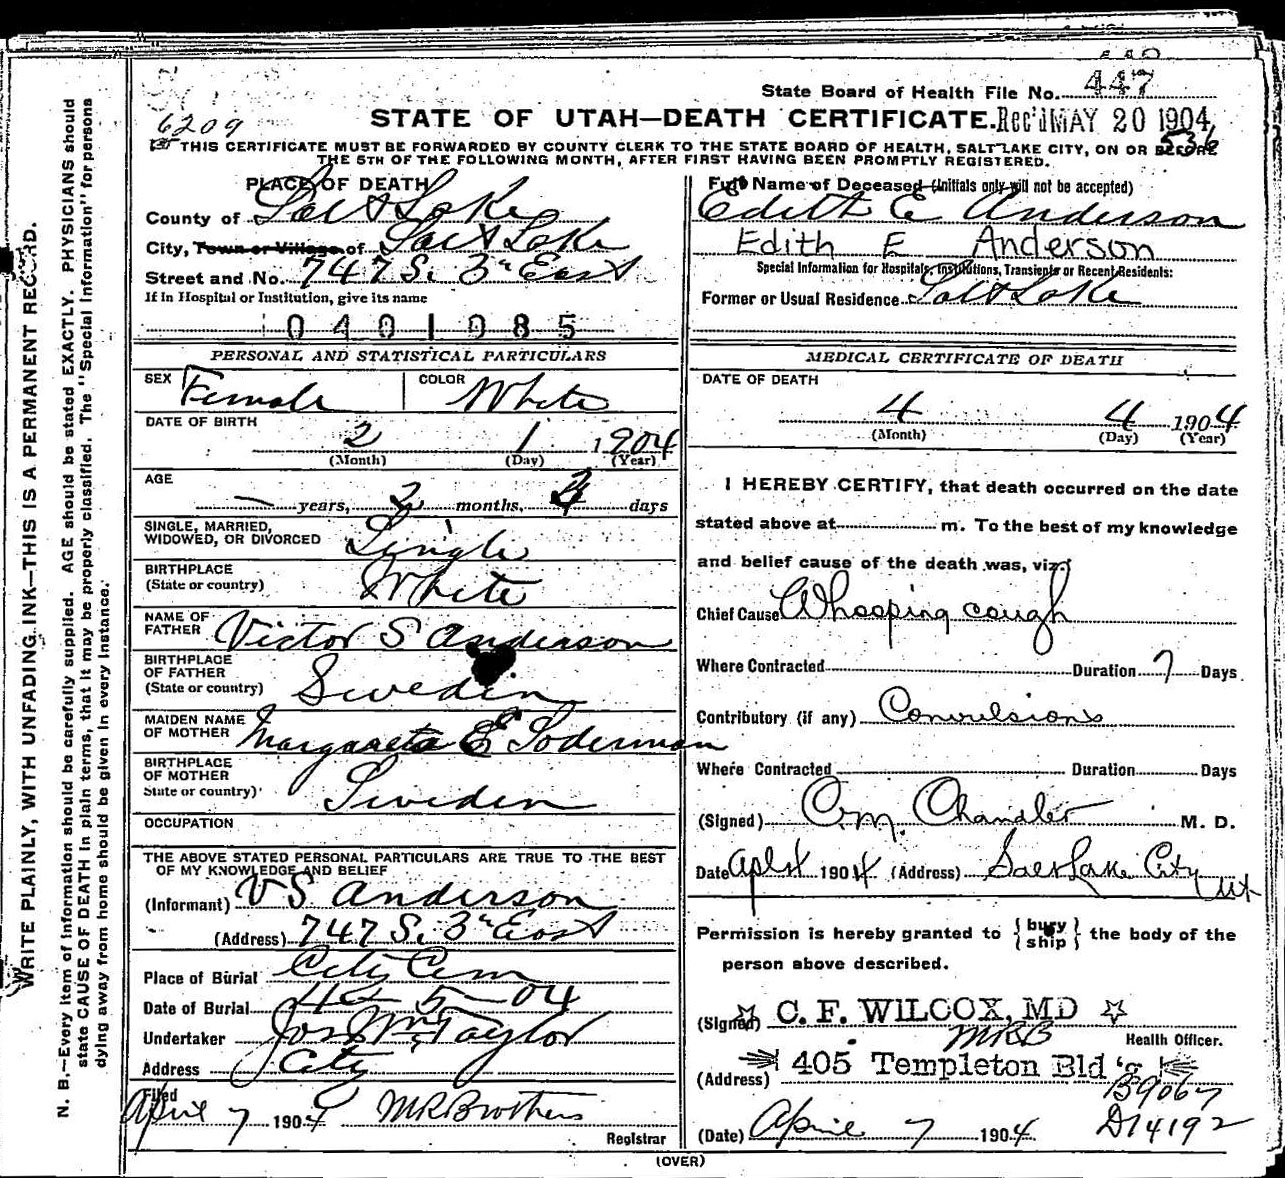 State Board of Health File No. 447
6209
STATE OF UTAH—DEATH CERTIFICATE. Rec'd MAY 20 1904
536
THIS CERTIFICATE MUST BE FORWARDED BY COUNTY CLERK TO THE STATE BOARD OF HEALTH, SALT LAKE CITY, ON OR BEFORE
THE 5TH OF THE FOLLOWING MONTH, AFTER FIRST HAVING BEEN PROMPTLY REGISTERED.
WRITE PLAINLY, WITH UNFADING INK—THIS IS A PERMANENT RECORD.
N. B.—Every item of information should be carefully supplied. AGE should be stated EXACTLY. PHYSICIANS should
state CAUSE OF DEATH in plain terms, that it may be properly classified. The "Special Information" for persons
dying away from home should be given in every instance.
PLACE OF DEATH
County of Salt Lake
City, Town or Village of Salt Lake
Street and No. 747 S. 3rd East
If in Hospital or Institution, give its name
0401985
PERSONAL AND STATISTICAL PARTICULARS
SEX Female COLOR White
DATE OF BIRTH
2 1 1904
(Month) (Day) (Year)
AGE
— years, 2 months, days
SINGLE, MARRIED,
WIDOWED, OR DIVORCED Single
BIRTHPLACE
(State or country) White
NAME OF
FATHER Victor S Anderson
BIRTHPLACE
OF FATHER
(State or country) Sweden
MAIDEN NAME
OF MOTHER Margareta E Soderman
BIRTHPLACE
OF MOTHER
State or country) Sweden
OCCUPATION
THE ABOVE STATED PERSONAL PARTICULARS ARE TRUE TO THE BEST
OF MY KNOWLEDGE AND BELIEF
(Informant) V S Anderson
(Address) 747 S. 3rd East
Place of Burial City Cem
Date of Burial 4-5-04
Undertaker Jos Wm Taylor
Address City
Filed
April 7 1904 M R Brothers
Registrar
Full Name of Deceased (Initials only will not be accepted)
Edith E Anderson
Edith E Anderson
Special Information for Hospitals, Institutions, Transients or Recent Residents:
Former or Usual Residence Salt Lake
MEDICAL CERTIFICATE OF DEATH
DATE OF DEATH
4 4 1904
(Month) (Day) (Year)
I HEREBY CERTIFY, that death occurred on the date
stated above at m. To the best of my knowledge
and belief cause of the death was, viz:
Chief Cause Whooping cough
Where Contracted Duration 7 Days
Contributory (if any) Convulsions
Where Contracted Duration Days
(Signed) Chandler M. D.
Date 1904 (Address) Salt Lake City Ut
Permission is hereby granted to { bury ship } the body of the
person above described.
(Signed) C. F. WILCOX, MD
MRB Health Officer.
(Address) 405 Templeton Bld'g
B9067
(Date) April 7 1904 D14192
(OVER)